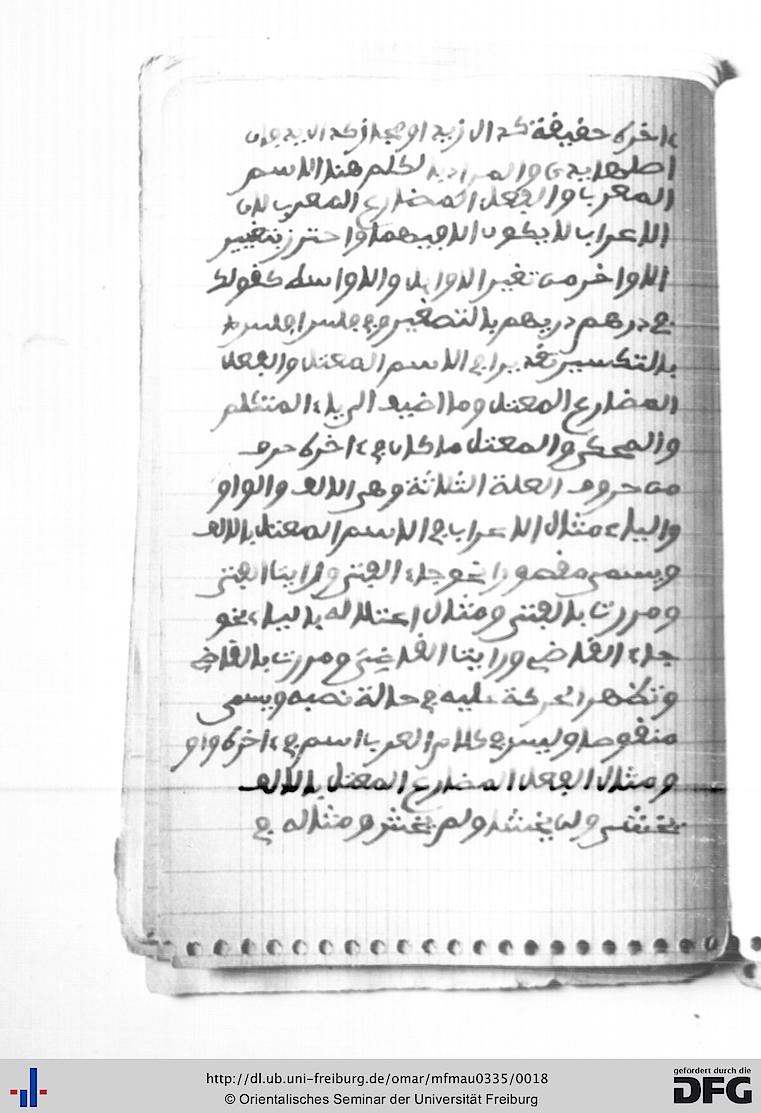 ءاخره حقيقة كدال زيد او مجازا كدال يد فان
اصلها يدي والمراد بالكلم هنا الاسم
المعرب والفعل المضارع المعرب لان
الاعراب لا يكون الا فيهما واحترز بتغيير
الاواخر من تغير الاوايل والاواسط كقولك
في درهم دريهم بالتصغير وفي
بالتكسير تقديرا في الاسم المعتل والفعل
المضارع المعتل وما اضيف الى ياء المتكلم
والمحكي والمعتل ما كان في ءاخره حرف
من حروف العلة الثلاثة وهي الالف والواو
والياء مثال الاعراب في الاسم المعتل بالالف
ويسمى مقصورا نحو جاء الفتى ورايت الفتى
ومررت بالفتى ومثال اعتلاله بالياء نحو
جاء القاضي ورايت القاضي ومررت بالقاضي
وتظهر الحركة عليه في حالة نصبه ويسمى
منقوصا وليس في كلام العرب اسم في ءاخره واو
ومثال الفعل المضارع المعتل بالالف
يخشى ولن يخشى ولم يخش ومثاله في
http://dl.ub.uni-freiburg.de/omar/mfmau0335/0018
© Orientalisches Seminar der Universität Freiburg
gefördert durch die
DFG